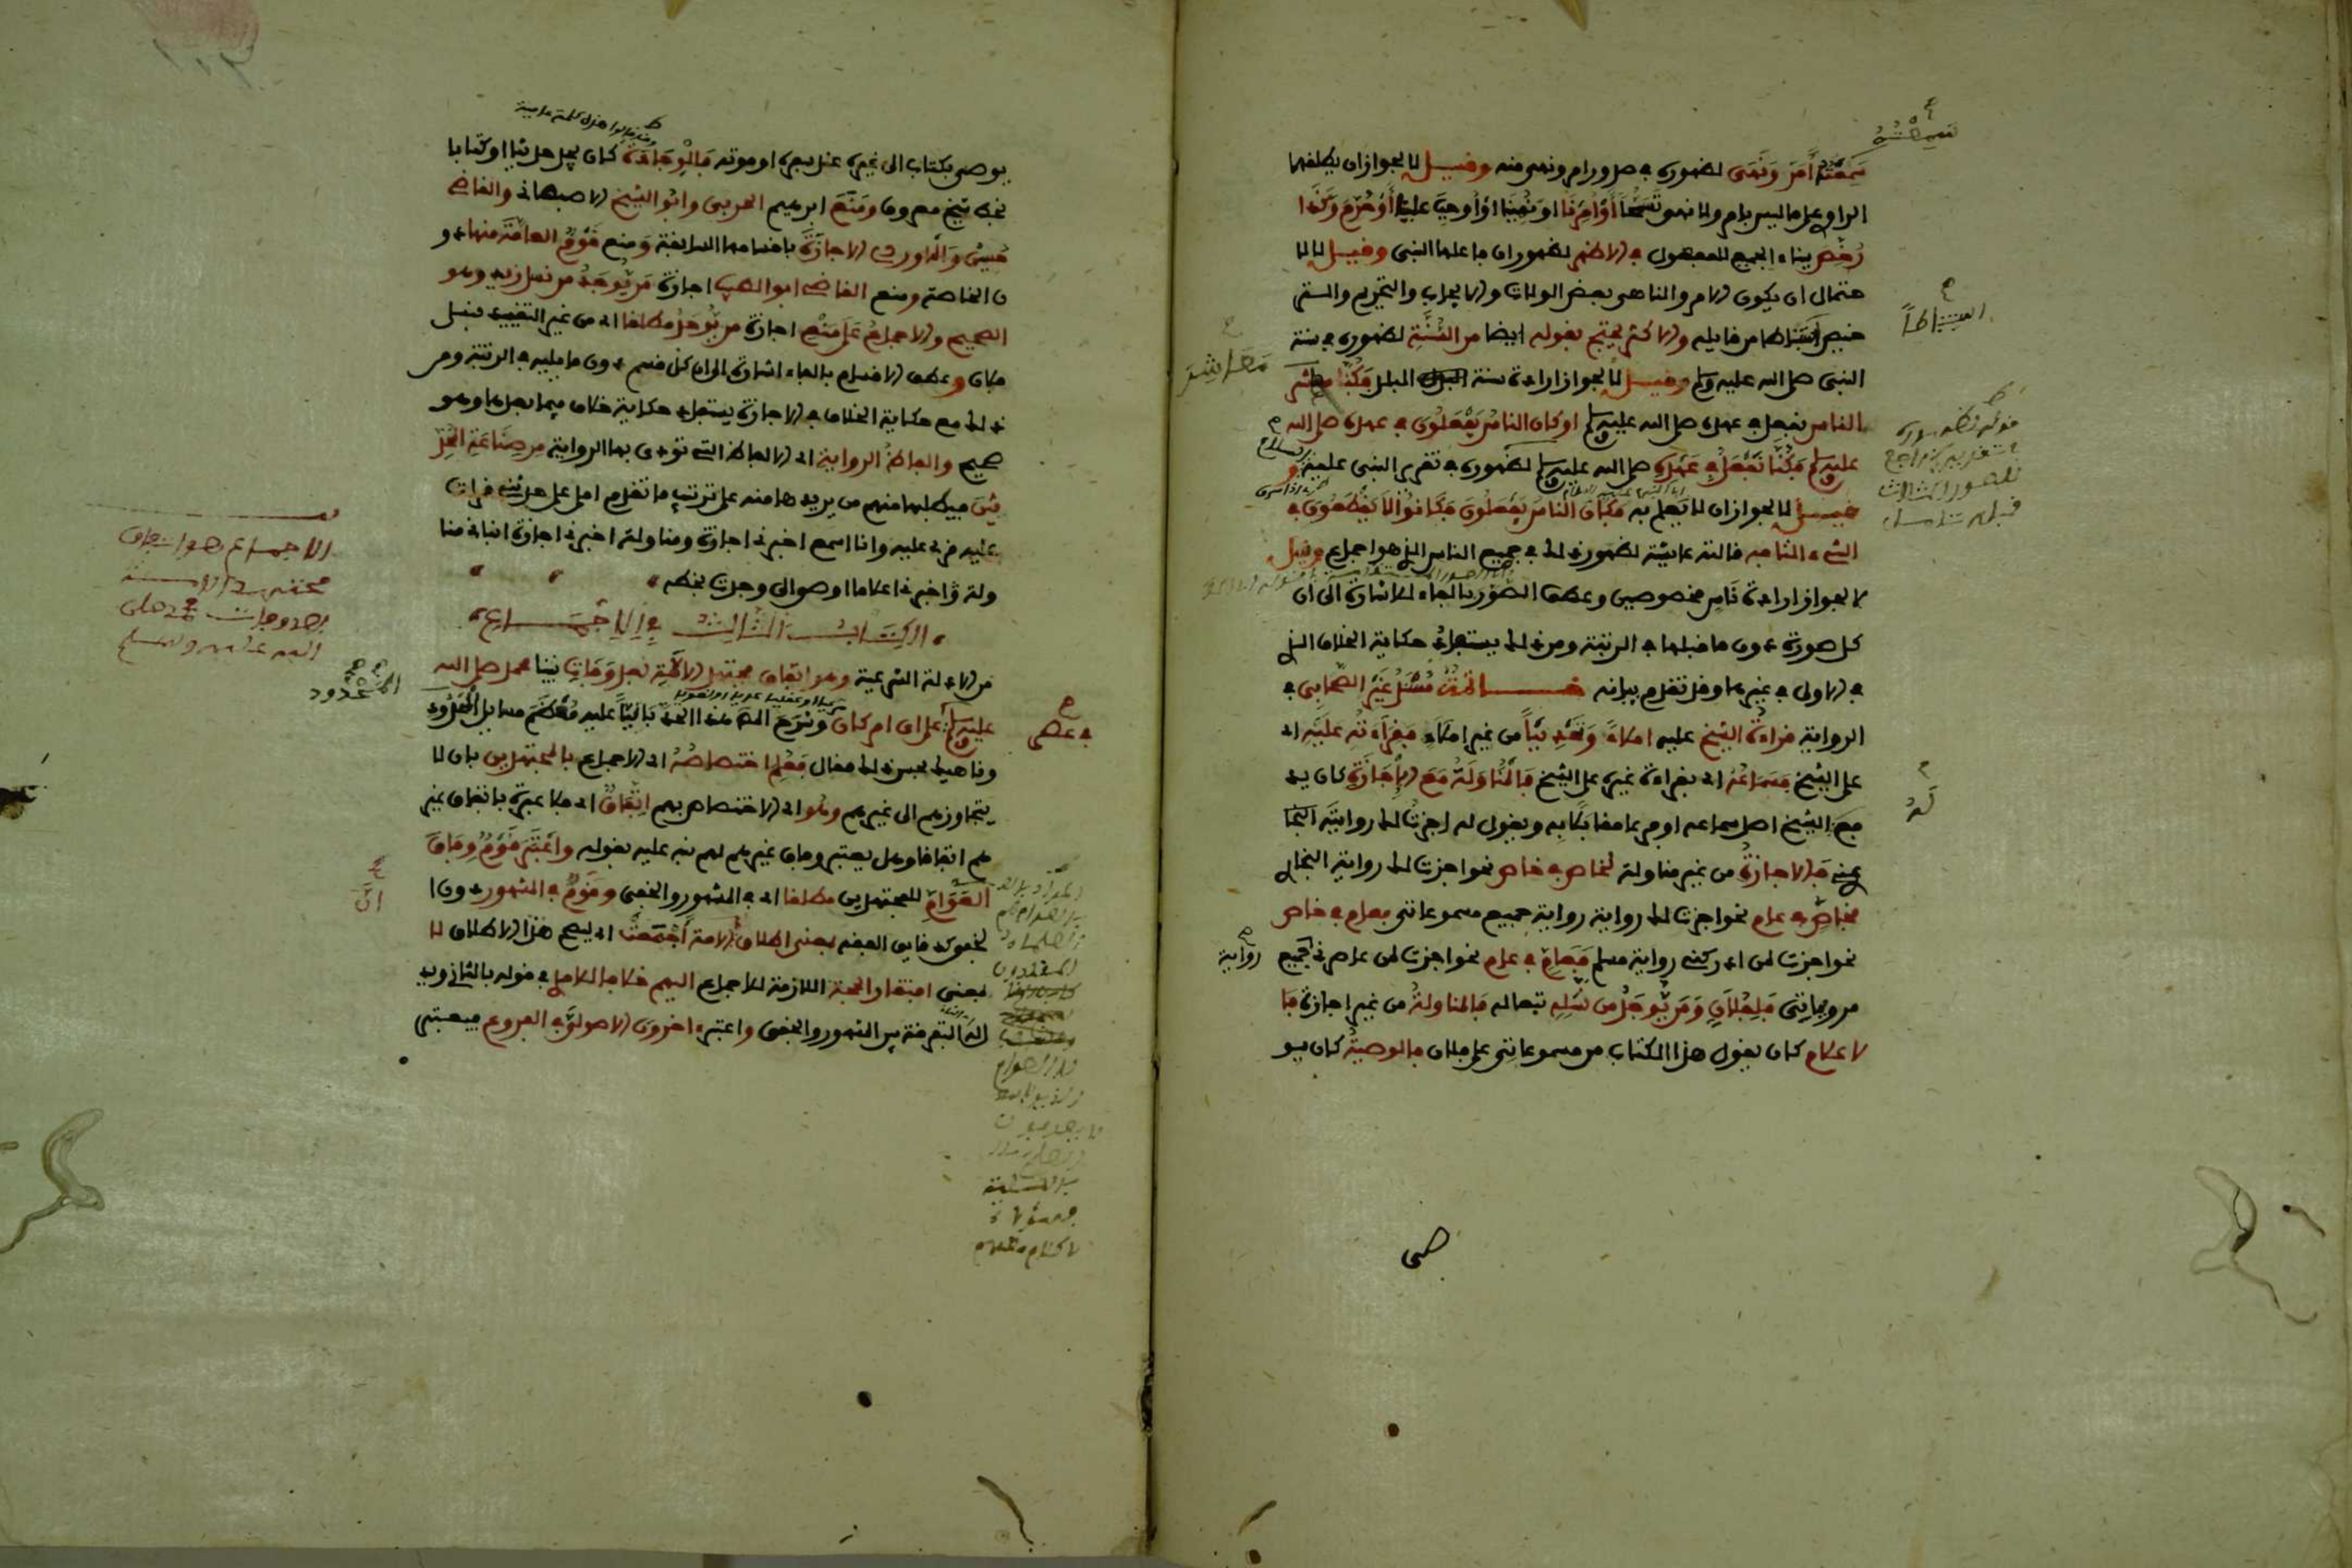 سَمِعْتُهُ أَمَرَ وَنَهَى لظهوره في صدور امر ونهي منه وقيل لا لجواز ان يطلقهما
الراوي على ما ليس بامر ولا نهي تسمحا أو أُمِرْنَا او نُهِينَا او أوجب علينا أو حُرِّمَ وكذا
رُخِّصَ ببناء الجميع للمفعول في الاظهر لظهور ان فاعلها النبي وقيل لا لا
حتمال ان يكون الامر والناهي بعض الولات والايجاب والتحريم والتر
خيص استنباطا من قايله والاكثر يحتج بقوله ايضا من السُّنَّةِ لظهوره في سنة
النبي صلى الله عليه وسلم وقيل لا لجواز ارادة سنة البلد فكُنَّا معاشر
الناس نفعل في عهده صلى الله عليه وسلم او كان الناس يَفْعَلُونَ في عهده صلى الله
عليه وسلم فكُنَّا نَفْعَلُ في عَهْدِهِ صلى الله عليه وسلم لظهوره في تقرير النبي عليه و
قيل لا لجواز ان لا يعلم به فكان الناس يَفْعَلُونَ فكَانُوا لَا يَقْطَعُونَ في
الشيء التافه قالته عائشة لظهور ذلك في جميع الناس الذي هو اجماع وقيل
لا لجواز ارادة ناس مخصوصين وعطف الصُّوَر بالفاء للاشارة الى ان
كل صورة دون ما قبلها في الرتبة ومن ذلك يستفاد حكاية الخلاف الذي
في الاولى في غيرها وقد تقدم بيانه خاتمة مُسْتَنَدُ غَيْرِ الصَّحَابِي في
الرواية قراءةُ الشيخ عليه املاءً وتَحْدِيثاً من غير املاءٍ فقِرَاءَتُهُ عَلَيْهِ اي
على الشيخ فسَمَاعُهُ اي بقراءة غيره على الشيخ فالْمُنَاوَلَةُ مَعَ الإِجَازَةِ كان يد
فع الشيخ اصل سماعه او فرعا مقابلا به ويقول له اجزت لك روايته
عني فالاجازةُ من غير مناولة لخاص في خاص نحو اجزت لك رواية البخاري
فخاص في عام نحو اجزت لك رواية رواية جميع مسموعاتي فعام في خاص
نحو اجزت لمن ادركني رواية مسلم فعام في عام نحو اجزت لمن عاصرني جميع
مروياتي فلِفُلَانٍ وَمَن يُوجَدُ من نَسْلِهِ تبعا له فالمناولةُ من غير اجازة فا
لاعلام كان يقول هذا الكتاب من مسموعاتي على فلان فالوصيةُ كان يو
صي
سمعته
استنباطاً
معاشر
له
رواية
يوصي بكتاب الى غيره عند سفره او موته فالْوِجَادَةُ كان يجد حديثا او كتابا
بخط شيخ معروف ومَنَعَ ابرهيم الحربي وابُو الشيخ الاصبهاني والقاضي
حُسَيْنٌ وَالْمَاوردي الاجازَةَ باقسامها السابقة ومنع قَوْمٌ العامَّةَ منها د و
ن الخاصة ومنع القاضي ابو الطيب اجازة مَن يُوجَدُ من نسل زيد وهو
الصحيح والاجماعُ عَلَى مَنْعِ اجازة من يُوجَدُ مطلقا اي من غير التقييد بنسل
فلان وعطف الاقسام بالفاء اشارة الى ان كل قسم دون ما يليه في الرتبة ومن
ذلك مع حكاية الخلاف في الاجازة يستفاد حكاية خلاف فيما بعدها وهو
صحيح والفاظُ الرواية اي الالفاظ التي تؤدى بها الرواية من صِنَاعَةِ المُحَدِّ
ثِينَ فيطلبها منهم من يريدها منه على ترتيب ما تقدم املى علي حدثني قرأت
عليه قرئ عليه وانا اسمع اخبرني اجازة ومناولة اخبرني اجازة انباني منا
ولة واخبرني اعلاما اوصى الي وجدت بخطه
الكِتَابُ الثَّالِثُ فِي الإِجْمَاعِ
من الادلة الشرعية وهو اتفاق مجتهد الأمَّةِ بعد وَفَاتِ نبينا محمد صلى الله
عليه وسلم على اي امر كان وشرح الحدَّ بَانِيًّا عليه مُعْظَمَ مسايل المحدود
وناهيك بحسن ذلك فقال فعُلِمَ اختصاصُهُ اي الاجماع بالمجتهدين بان لا
يتجاوزهم الى غيرهم وهُو اي الاختصاص بهم اتِّفَاقٌ اي فلا عبرة باتفاق غير
هم اتفاقا وهل يعتبر وفاق غيرهم لهم نبه عليه بقوله واعْتَبَرَ قَوْمٌ وِفَاقَ
العَوَامِّ للمجتهدين مطلقا اي في المشهور والخفي وقَوْمٌ في المشهور دون ا
لخفي كدقايق الفقه بمعنى اطلاق ان الامة أَجْمَعَتْ اي ليصح هذا الاطلاق لا
بمعنى افتقار الحجة اللازمة للاجماع اليهم خلافا للآمدي في قوله بالثاني ويد
التفرقة بين المشهور والخفي واعتبر ءاخرون الاصولِيَّ في الفروع فيعتبر
الاجماع هو اتفاق
مجتهد الامة
بعد وفات محمد صلى
الله عليه وسلم
المحدود
في عصر
انَّ